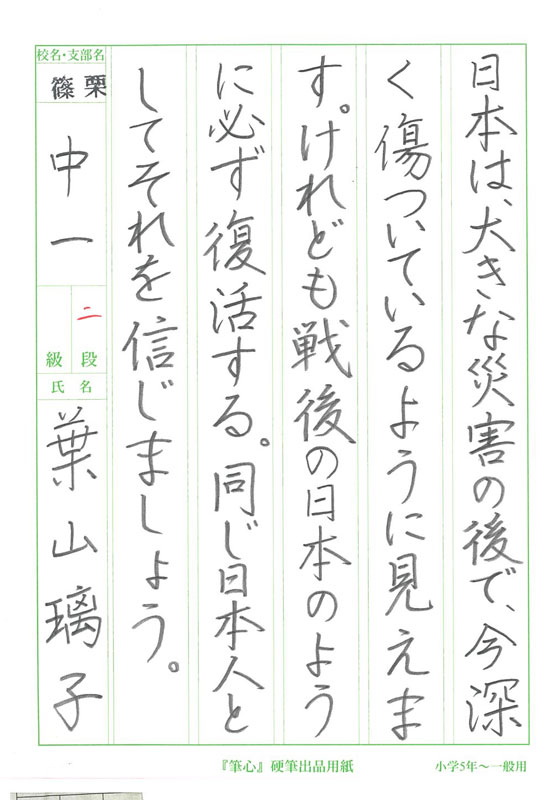 日本は、大きな災害の後で、今深
く傷ついているように見えま
す。けれども戦後の日本のよう
に必ず復活する。同じ日本人と
してそれを信じましょう。
校名・支部名
篠栗
中一
二
級段
氏名
葉山璃子
『筆心』硬筆出品用紙
小学5年～一般用